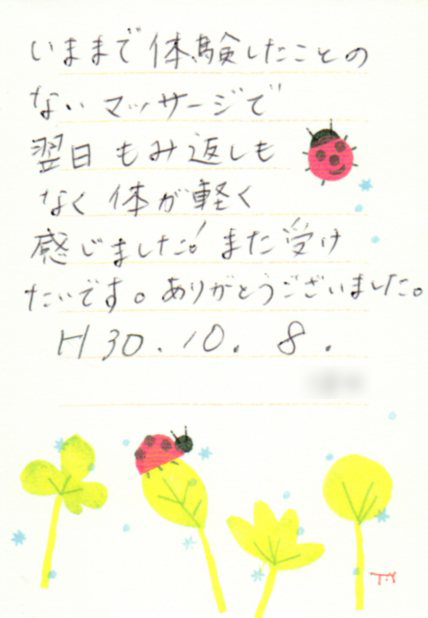 いままで体験したことの
ないマッサージで
翌日もみ返しも
なく体が軽く
感じました!また受け
たいです。ありがとうございました。
H30.10.8.
T.Y